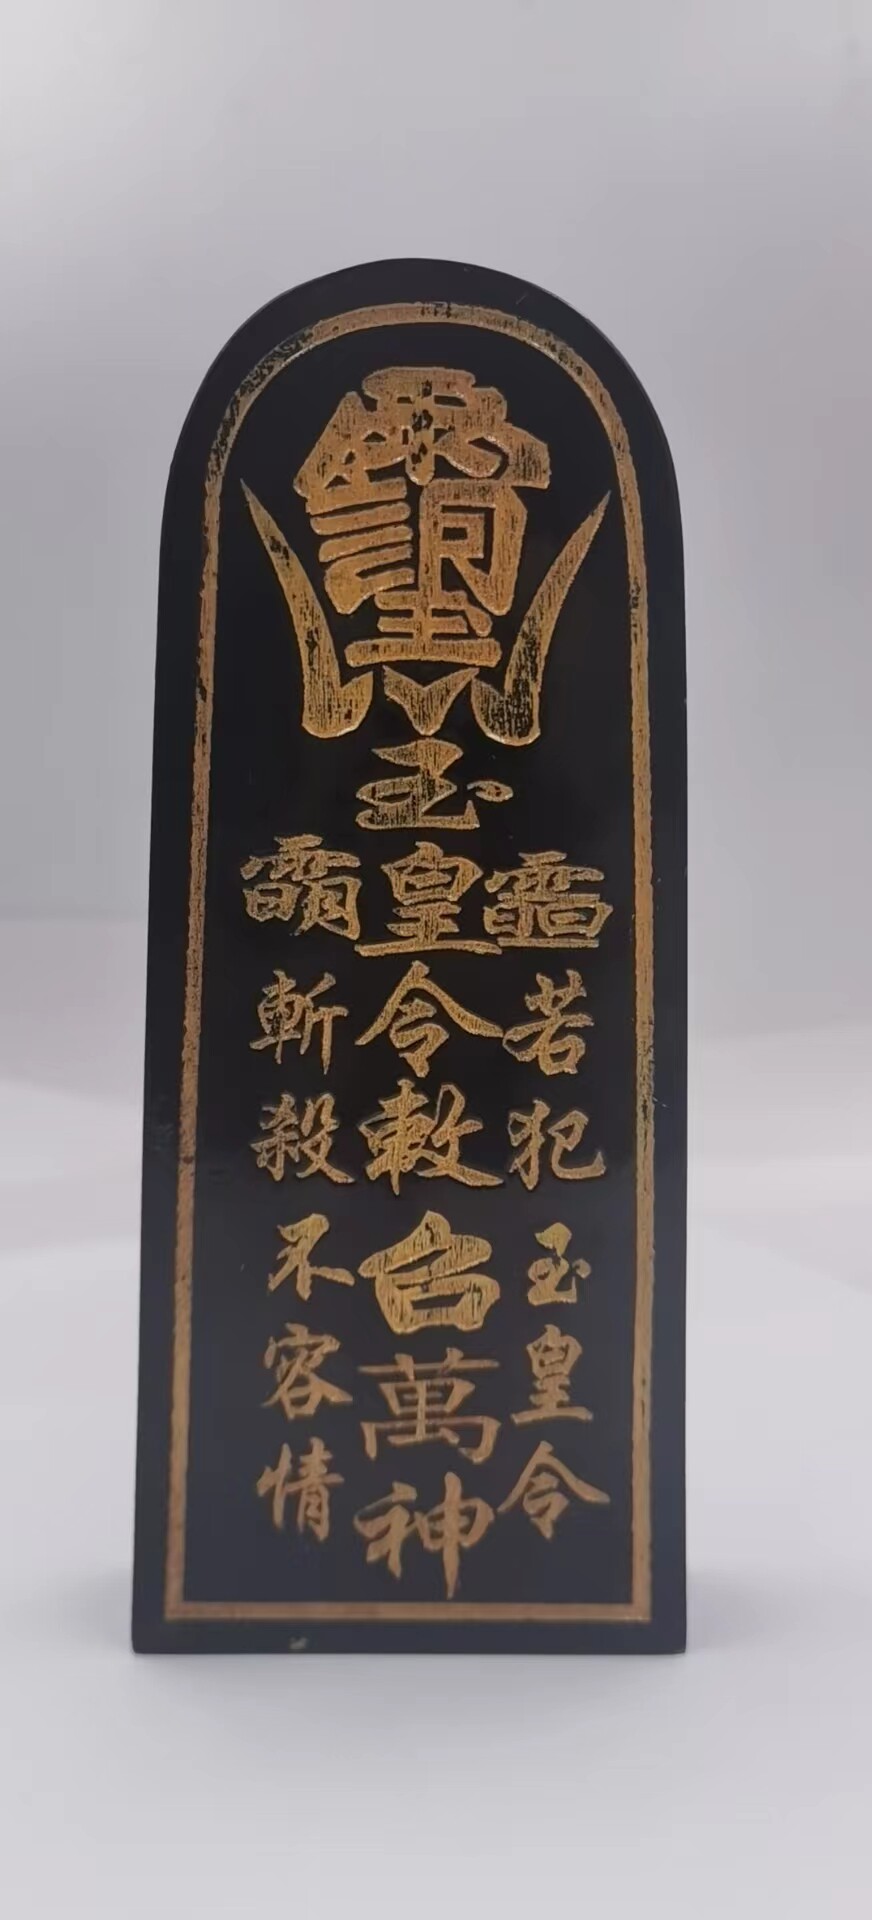 玉皇令敕召萬神
若犯玉皇令
斬殺不容情